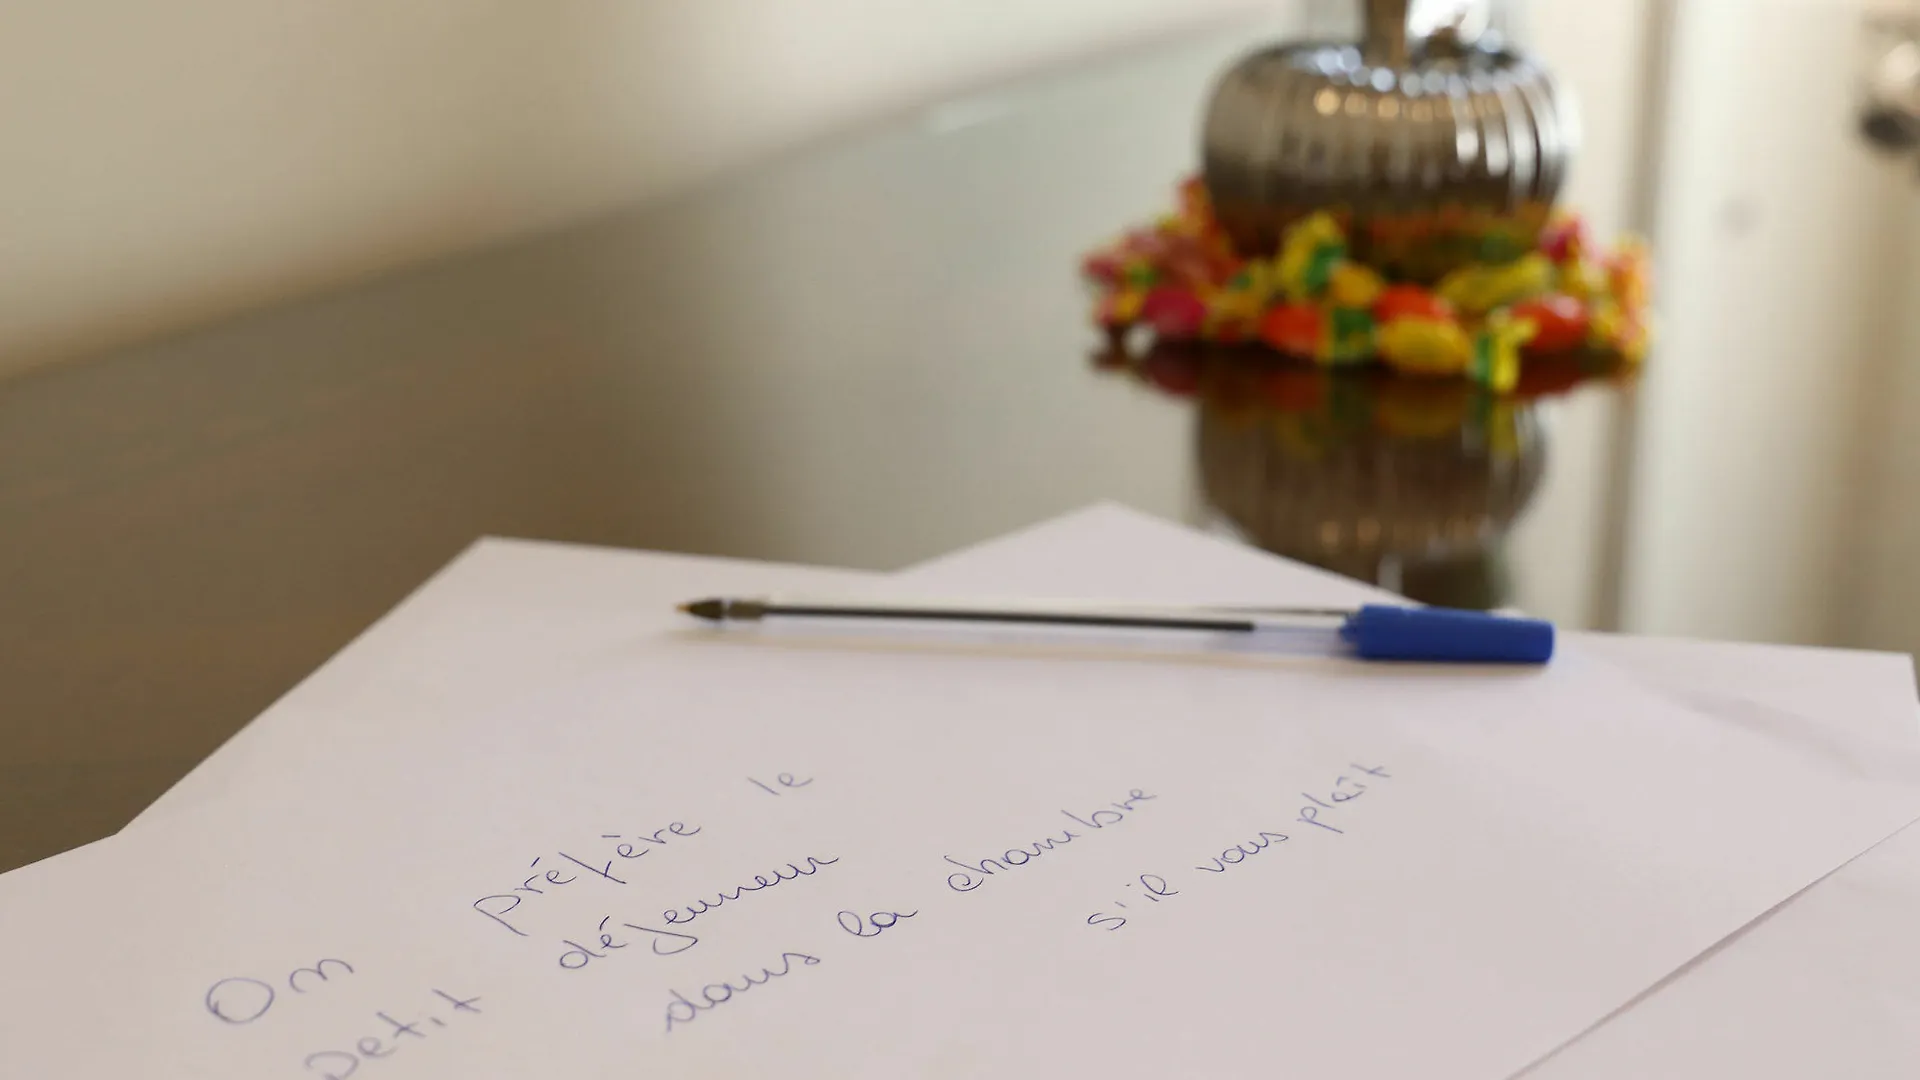 On préfère le
petit déjeuneur
dans la chambre
s'il vous plaît